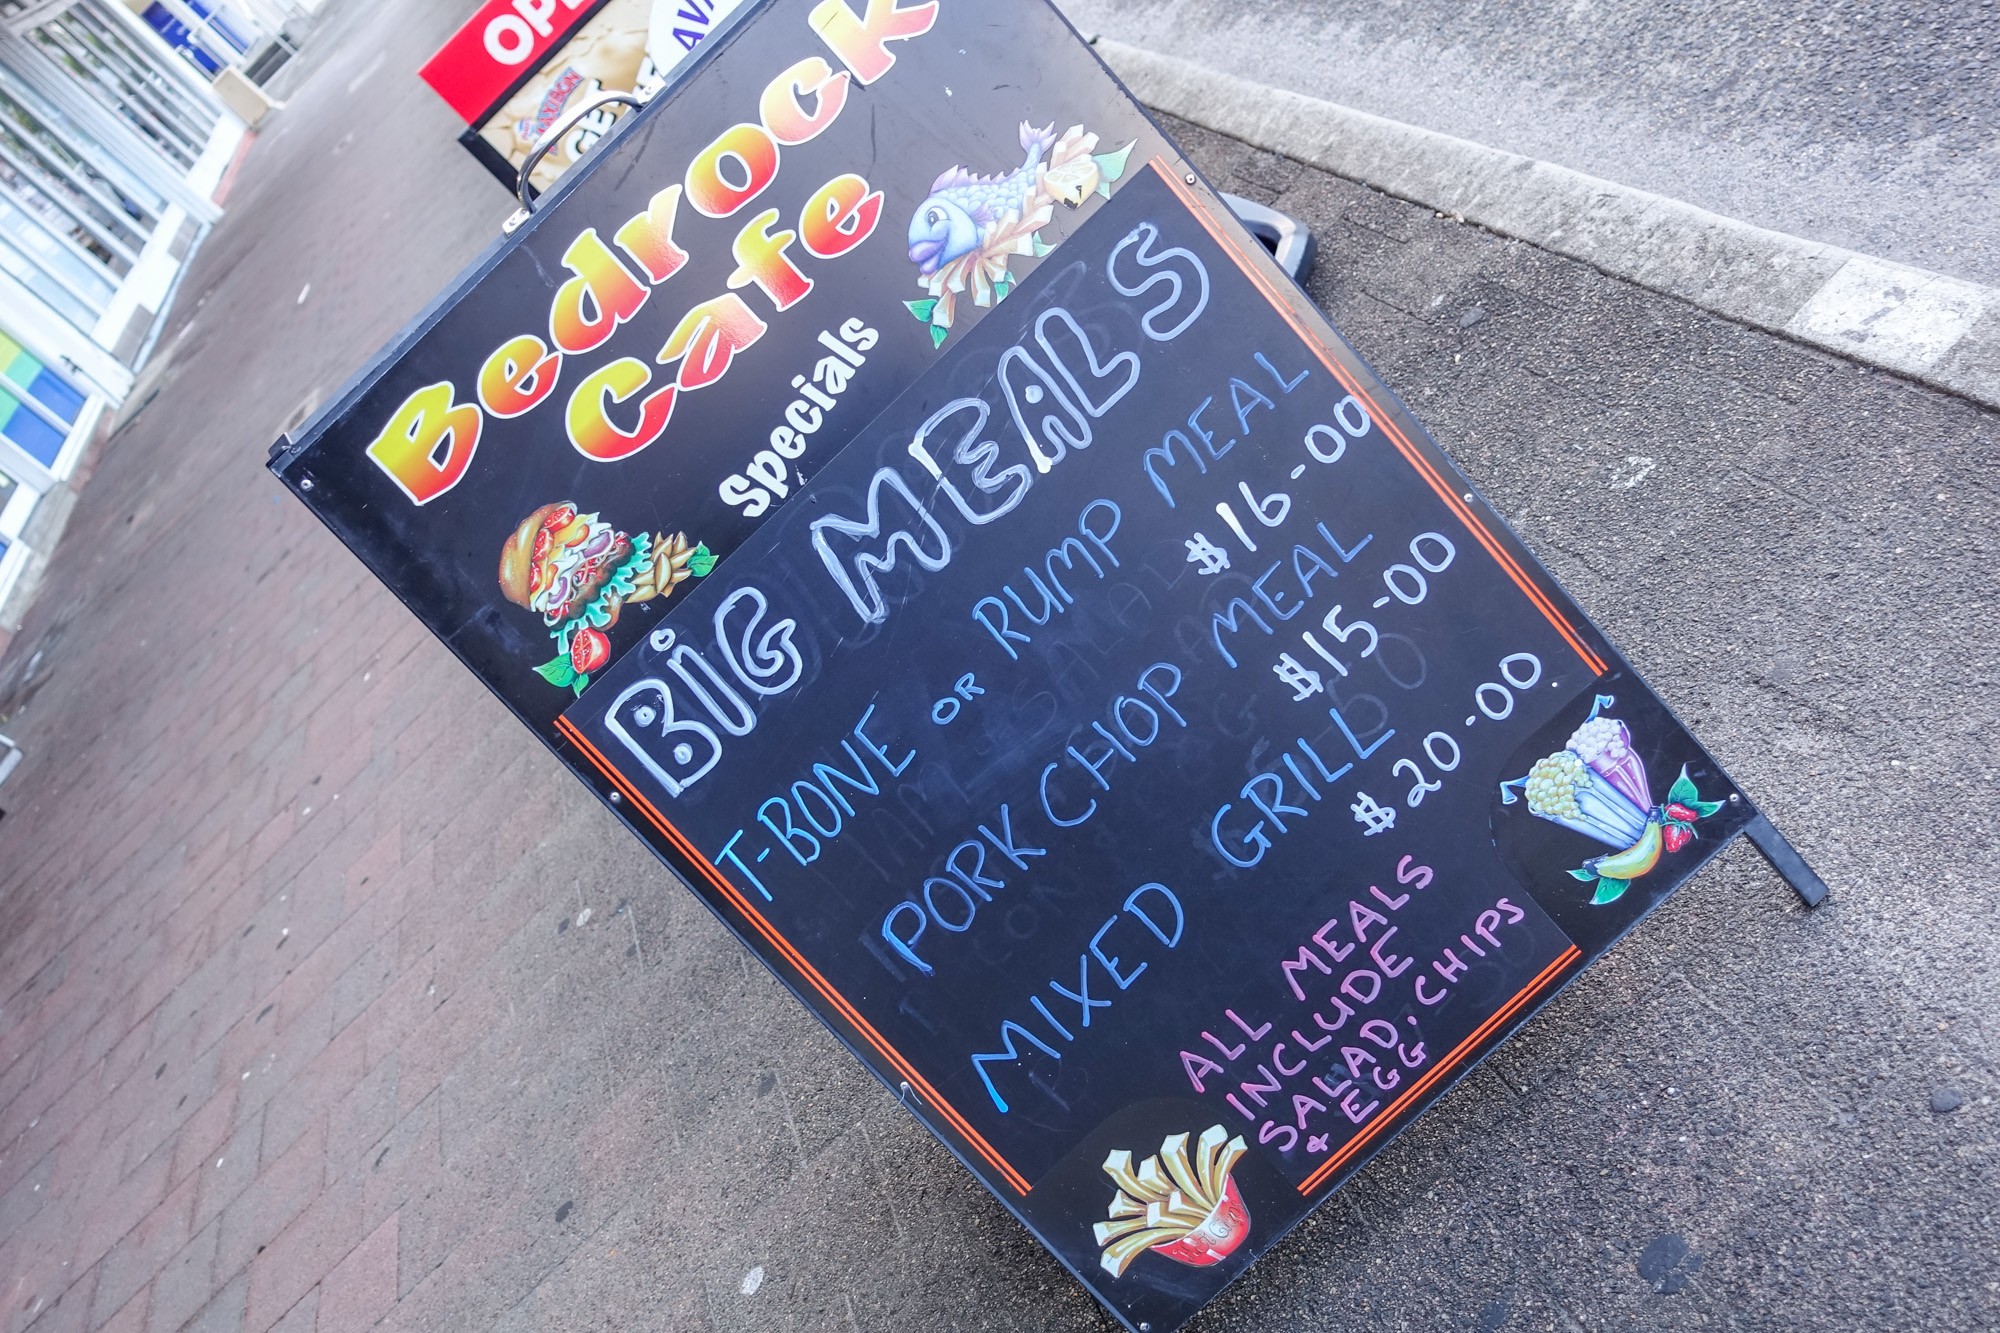 OPE
AVA
GET
Bedrock
Cafe
Specials
BIG MEALS
T-BONE OR RUMP MEAL
$16-00
PORK CHOP MEAL
$15-00
MIXED GRILL
$20-00
ALL MEALS
INCLUDE
SALAD, CHIPS
& EGG